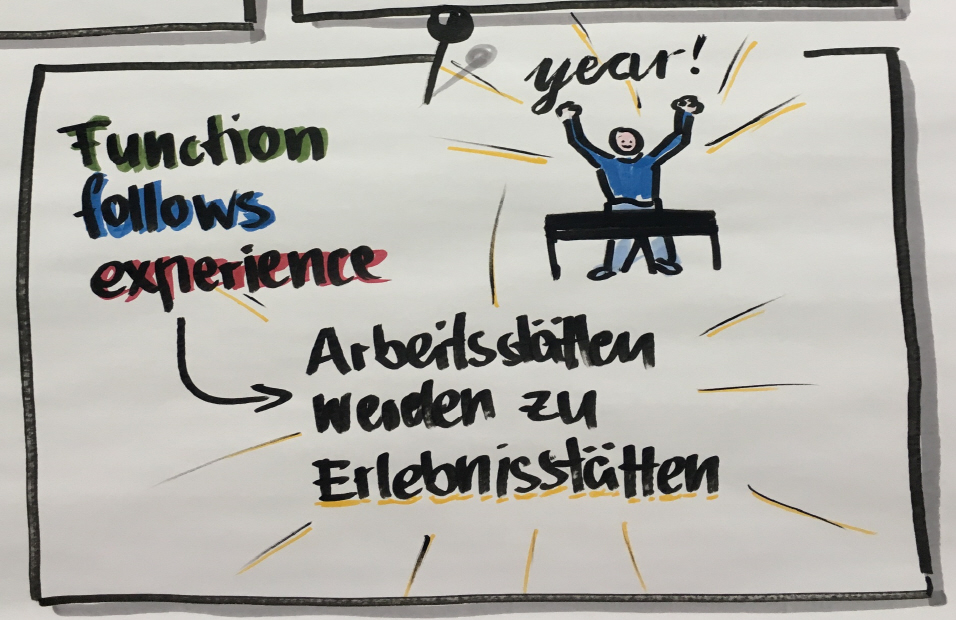 year!
Function
follows
experience
Arbeitsstätten
werden zu
Erlebnisstätten